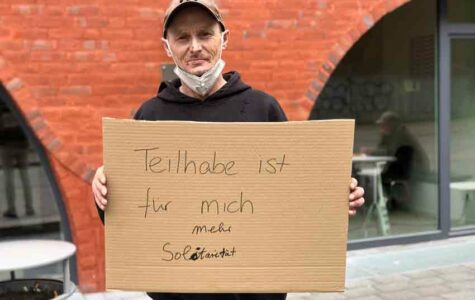 Teilhabe ist
für mich
mehr
Solitarität